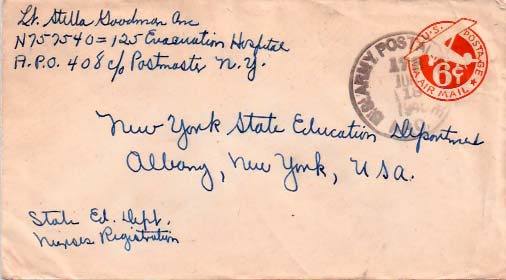 Lt. Stella Goodman Anc
N757540 = 125 Evacuation Hospital
A.P.O. 408 c/o Postmaster N.Y.
U.S. POSTAGE
6¢
VIA AIR MAIL
U.S. ARMY POSTAL
New York State Education Department
Albany, New York, USA.
State Ed. Dept.
Nurses Registration